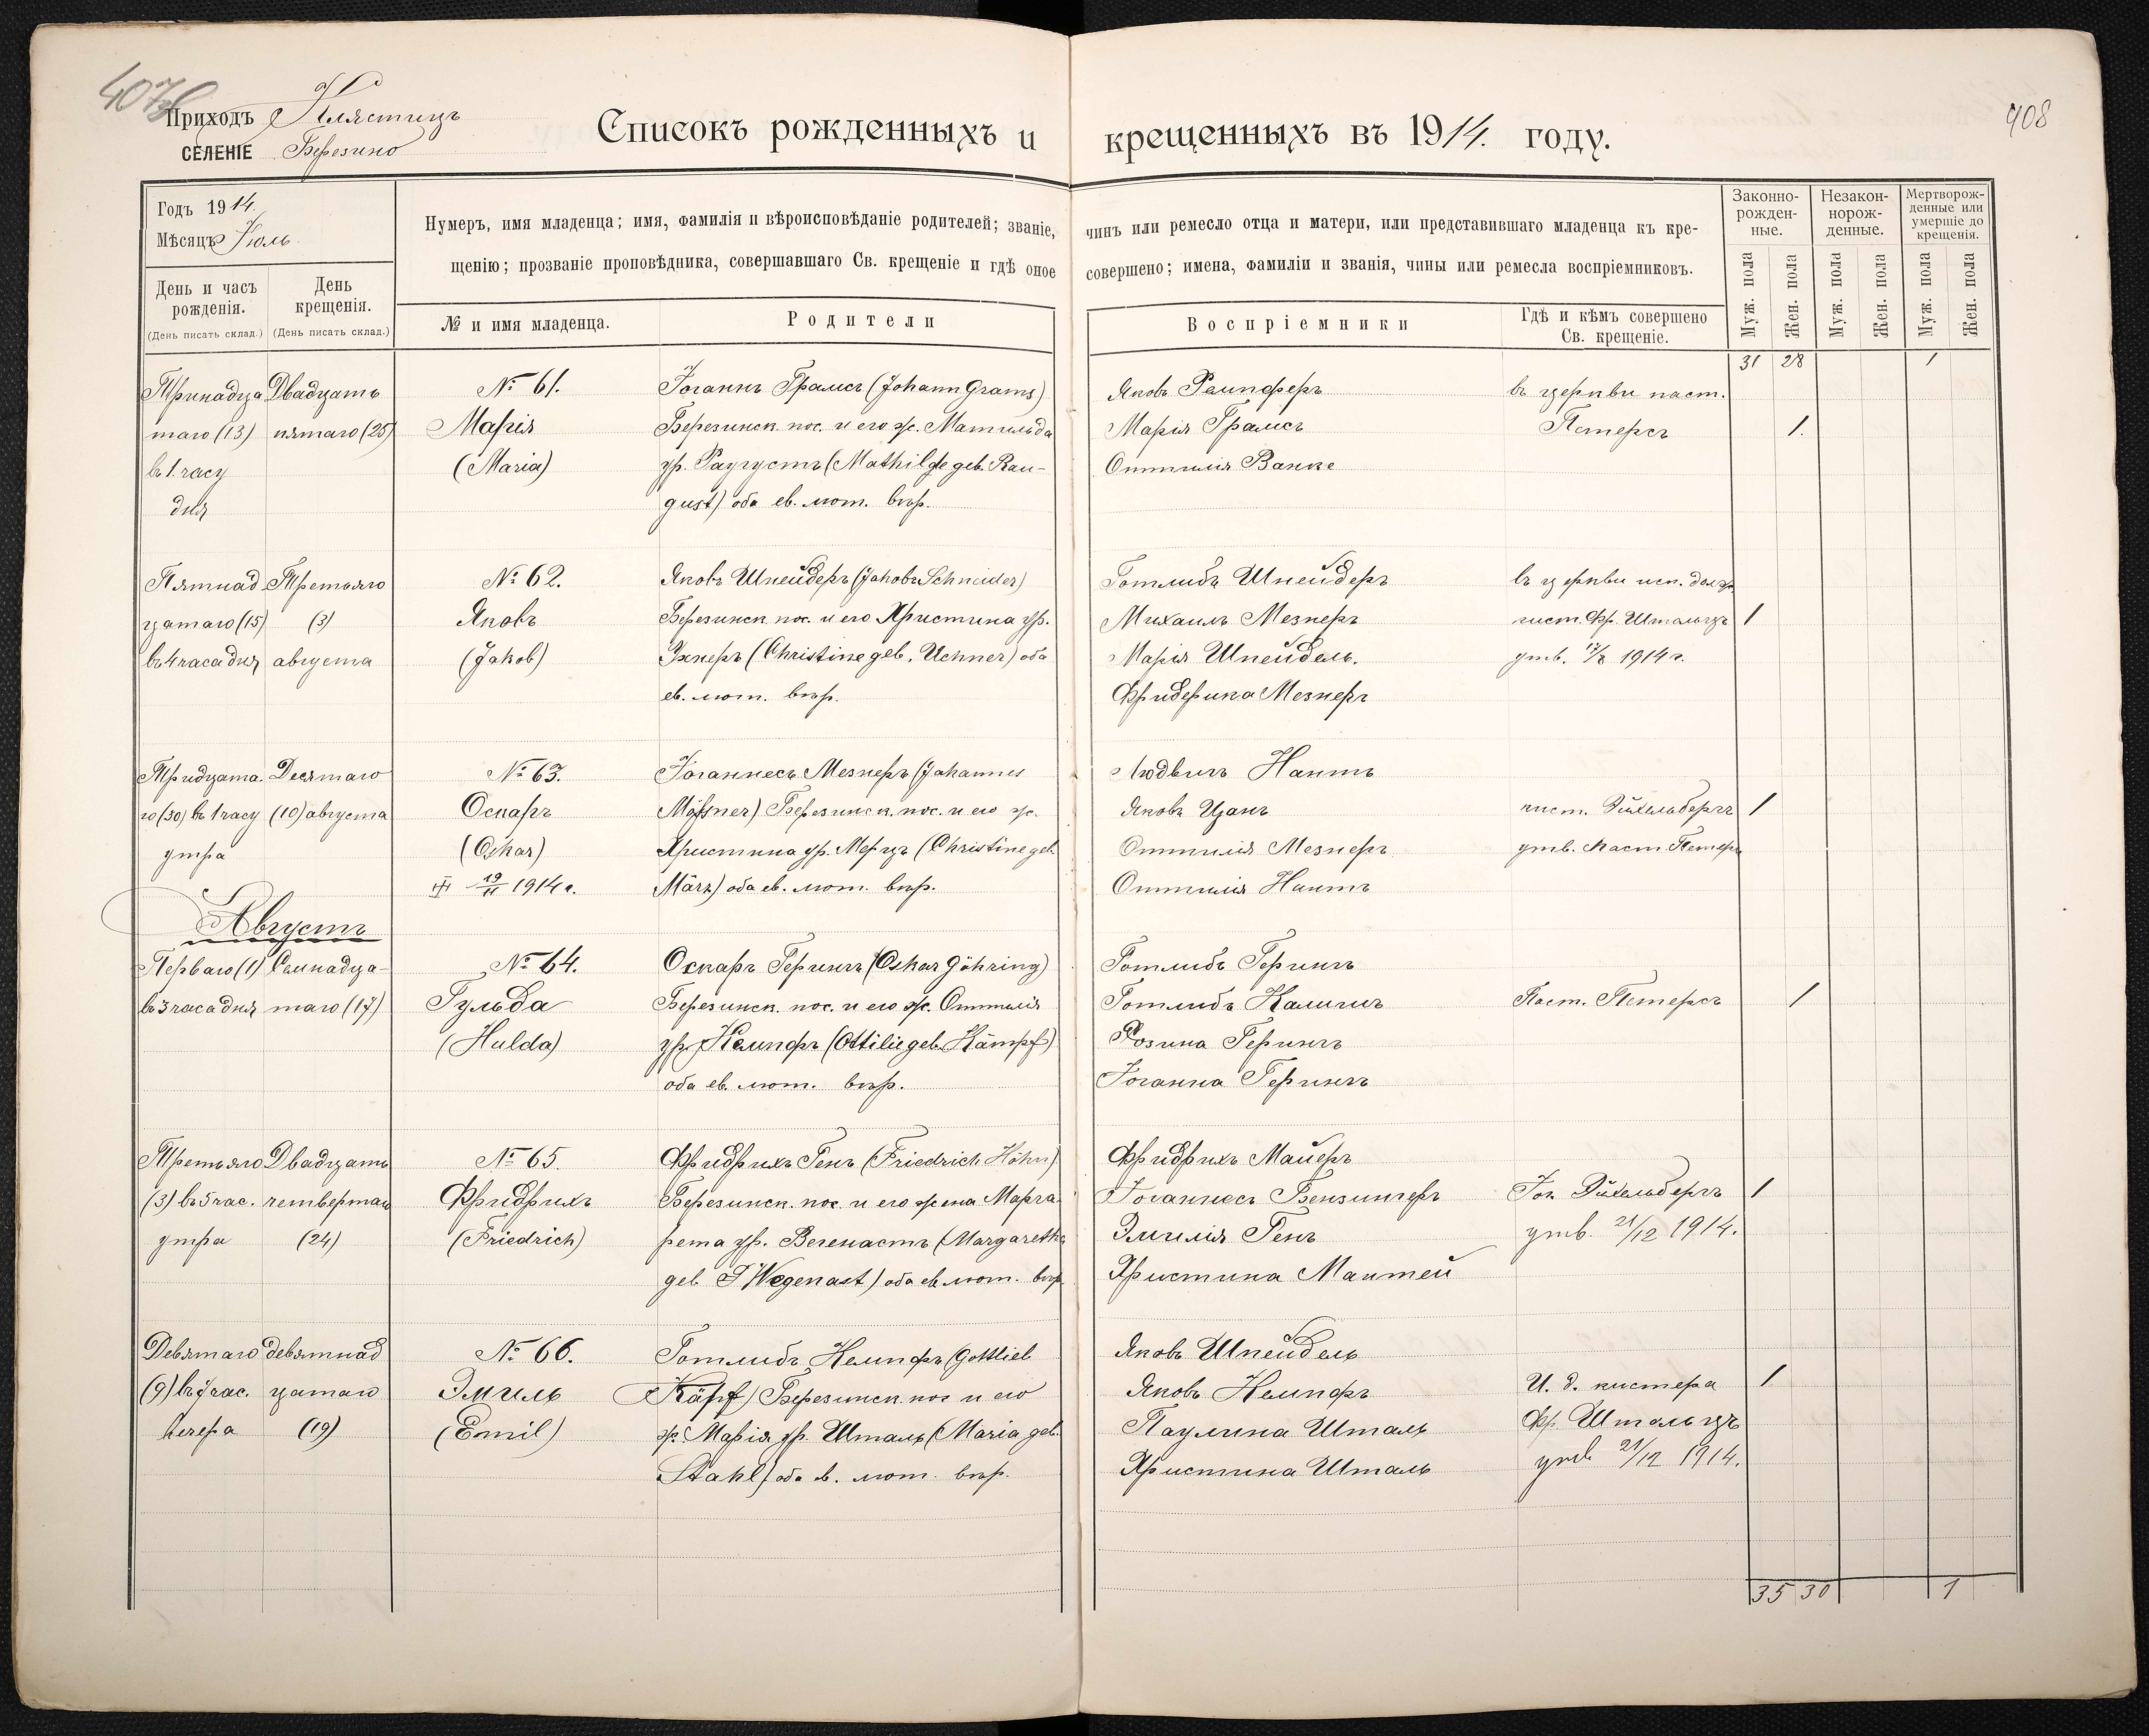 407
408
Приходъ Клястицъ
СЕЛЕНІЕ Березино
Списокъ рожденныхъ и крещенныхъ въ 1914. году.
Годъ 1914.
Мѣсяцъ Іюль
День и часъ рожденія.
(День писать склад.)
День крещенія.
(День писать склад.)
Нумеръ, имя младенца; имя, фамилія и вѣроисповѣданіе родителей; званіе, чинъ или ремесло отца и матери, или представившаго младенца къ кре-
щенію; прозваніе проповѣдника, совершавшаго Св. крещеніе и гдѣ оное совершено; имена, фамиліи и званія, чины или ремесла воспріемниковъ.
№ и имя младенца.
Родители
Воспріемники
Гдѣ и кѣмъ совершено
Св. крещеніе.
Законно-
рожден-
ные.
Незакон-
норож-
денные.
Мертворож-
денные или
умершіе до
крещенія.
Муж. пола
Жен. пола
Муж. пола
Жен. пола
Муж. пола
Жен. пола
31 28 1
Тринадца Двадцать № 61. Іоганнъ Грамсъ (Johann Grams) Яковъ Рампферъ въ церкви паст.
таго (13) пятаго (25) Марія Березинск. пос. и его ж. Матильда Марія Грамсъ Петерсъ 1.
въ 1 часу (Maria) ур. Раугустъ (Mathilde geb. Rau- Оттилія Ванке
дня gust) оба ев. лют. вѣр.
Пятнад Третьяго № 62. Яковъ Шнейдеръ (Jakob Schneider) Готлибъ Шнейдеръ въ церкви исп. долж
цатаго (15) (3) Яковъ Березинск. пос. и его Христина ур. Михаилъ Мезнеръ кист. Фр. Штольцъ 1
въ 4 часа дня августа (Jakob) Ухнеръ (Christine geb. Uchner) оба Марія Шнейдель. утв. 1914 г.
ев. лют. вѣр. Фридерика Мезнеръ
Тридцата- Десятаго № 63. Іоганнесъ Мезнеръ (Johannes Людвигъ Нантъ
го (30) въ 1 часу (10) августа Оскаръ Mößner) Березинск. пос. и его ж. Яковъ Цанъ кист. Эйхельбергъ 1
утра (Oskar) Христина ур. Мерцъ (Christine geb. Оттилія Мезнеръ утв. паст. Петерс
19/11 1914 г. März) оба ев. лют. вѣр. Оттилія Нантъ
Августъ
Перваго (1) Семнадца- № 64. Оскаръ Герингъ (Oskar Göhring) Готлибъ Герингъ
въ 3 часа дня таго (17) Гульда Березинск. пос. и его ж. Оттилія Готлибъ Калисъ Паст. Петерсъ 1
(Hulda) ур. Кемпфъ (Ottilie geb. Kämpf) Розина Герингъ
оба ев. лют. вѣр. Іоганна Герингъ
Третьяго Двадцать № 65. Фридрихъ Генъ (Friedrich Höhn) Фридрихъ Майеръ
(3) въ 5 час. четвертаго Фридрихъ Березинск. пос. и его жена Марга- Іоганнесъ Бензингеръ Іог. Эйхельбергъ 1
утра (24) (Friedrich) рета ур. Вегенастъ (Margaretha Эмилія Генъ утв. 21/12 1914.
geb. Wegenast) оба ев. лют. вѣр. Христина Мантей
Девятаго девятнад № 66. Готлибъ Кемпфъ (Gottlieb Яковъ Шнейдель
(9) въ 7 час. цатаго Эмиль Käpf) Березинск. пос. и его Яковъ Кемпфъ И. д. кистера 1
вечера (19) (Emil) ж. Марія ур. Шталь (Maria geb. Паулина Шталь Фр. Штольцъ
Stahl) оба ев. лют. вѣр. Христина Шталь утв. 21/12 1914.
35 30 1